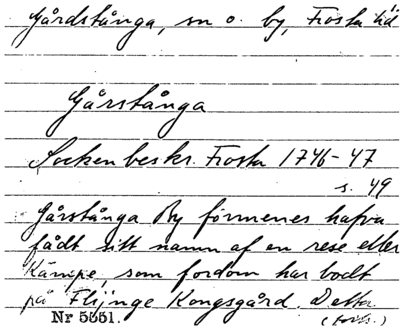 Gårdstånga, sn o. by, Frosta hd
Gårstånga
Sockenbeskr. Frosta 1746-47
s. 49
Gårstånga By förmenes hafva
fådt sitt namn af en rese eller
Kämpe, som fordom har bodt
på Flyinge Kongsgård. Detta
Nr 5551. (forts.)